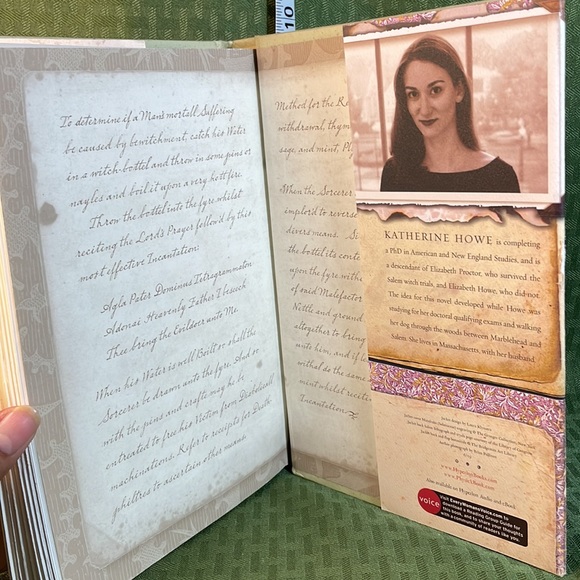 To determine if a Man's mortall Suffering
be caused by bewitchment, catch his Water
in a witch-bottel and throw in some pins or
nayles and boil it upon a very hott fire.
Throw the bottel into the fyre whilst
reciting the Lord's Prayer followd by this
most effective Incantation:
Agla Pater Dominus Tetragrammaton
Adonai Heavenly Father I beseech
Thee bring the Evildoer unto Me.
When his Water is well Boilt so shall the
Sorcerer be drawn unto the fyre. And so
with the pins and crafts may he be
entreated to free his Victim from Diabolicall
machinations. Refer to receipts for Death-
philtres to ascertain other means.
Method for the
withdrawal, thym
sage, and mint,
When the Sorcerer
implor'd to reverse
divers means.
the bottel its conte
upon the fyre with
of said Malefactor
Nettle and ground
altogether to bring
unto him, and if
withal do the same
ment whilst reciti
Incantation
10
KATHERINE HOWE is completing
a PhD in American and New England Studies, and is
a descendant of Elizabeth Proctor, who survived the
Salem witch trials, and Elizabeth Howe, who did not.
The idea for this novel developed while Howe was
studying for her doctoral qualifying exams and walking
her dog through the woods between Marblehead and
Salem. She lives in Massachusetts, with her husband.
Jacket design by Laura Klynstra
www.HyperionBooks.com
Also available on Hyperion Audio and eBook
voice
Visit EverywomansVoice.com to
download a Reading Group Guide for
this book, and to share your thoughts
with a community of readers like you.